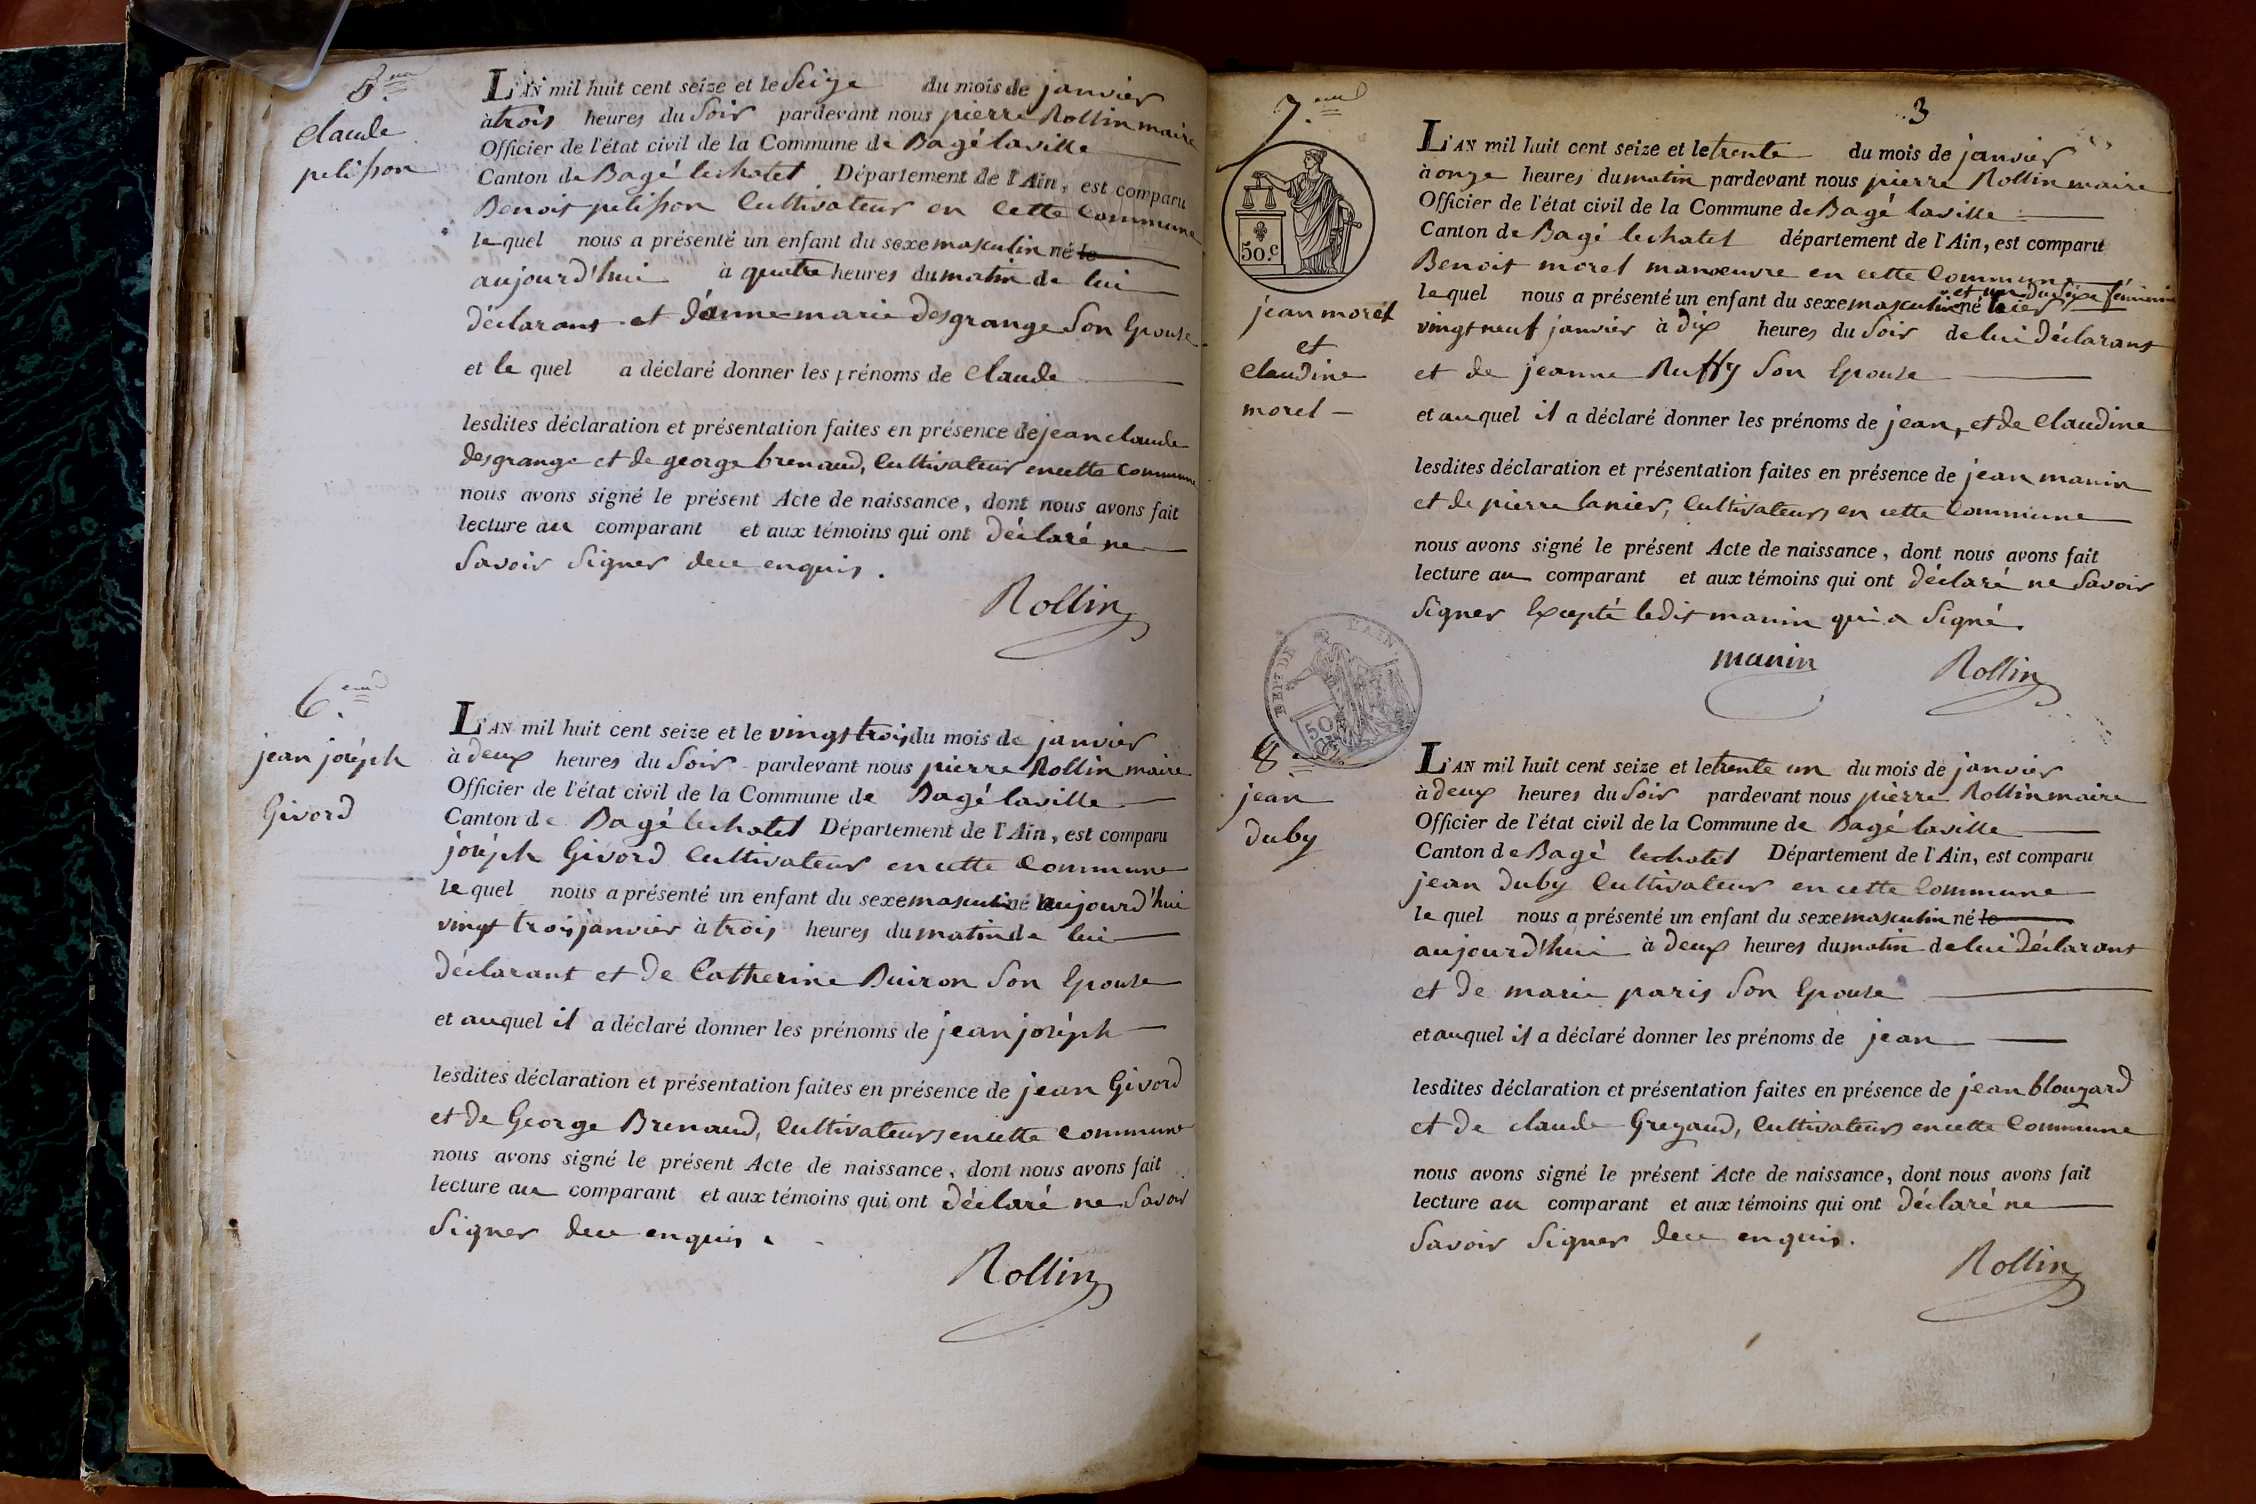 5.eme
Claude
pelisson
L'AN mil huit cent seize et le Seize du mois de janvier
à trois heures du Soir pardevant nous pierre Rollin maire
Officier de l'état civil de la Commune de Bagé laville
Canton de Bagé lechatel Département de l'Ain, est comparu
Benoit pelisson Cultivateur en Cette Commune
le quel nous a présenté un enfant du sexe masculin né le
aujourd'hui à quatre heures du matin de lui
déclarant et d'anne marie desgrange Son Epouse
et le quel a déclaré donner les prénoms de Claude
lesdites déclaration et présentation faites en présence de jean claude
desgrange et de george brenaud, Cultivateur en cette commune
nous avons signé le présent Acte de naissance, dont nous avons fait
lecture au comparant et aux témoins qui ont déclaré ne
Savoir Signer de ce enquis.
Rollin
6.eme
jean joséph
Givord
L'AN mil huit cent seize et le vingt trois du mois de janvier
à deux heures du Soir pardevant nous pierre Rollin maire
Officier de l'état civil de la Commune de Bagé laville
Canton de Bagé lechatel Département de l'Ain, est comparu
joséph Givord Cultivateur en cette Commune
le quel nous a présenté un enfant du sexe masculin né le aujourd'hui
vingt trois janvier à trois heures du matin de lui
déclarant et de Catherine Buiron Son Epouse
et auquel il a déclaré donner les prénoms de jean joséph
lesdites déclaration et présentation faites en présence de jean Givord
et de George Brenaud, Cultivateurs en cette Commune
nous avons signé le présent Acte de naissance, dont nous avons fait
lecture au comparant et aux témoins qui ont déclaré ne Savoir
Signer de ce enquis.
Rollin
3
7.eme
50.c
jean morel
et
Claudine
morel
L'AN mil huit cent seize et le trente du mois de janvier
à onze heures du matin pardevant nous pierre Rollin maire
Officier de l'état civil de la Commune de Bagé laville
Canton de Bagé lechatel département de l'Ain, est comparu
Benoit morel manœuvre en cette Commune
et un du sexe féminin
le quel nous a présenté un enfant du sexe masculin né hier
vingt neuf janvier à dix heures du Soir de lui déclarant
et de jeanne Ruffy Son Epouse
et auquel il a déclaré donner les prénoms de jean, et de Claudine
lesdites déclaration et présentation faites en présence de jean manin
et de pierre lanier, Cultivateurs en cette Commune
nous avons signé le présent Acte de naissance, dont nous avons fait
lecture au comparant et aux témoins qui ont déclaré ne Savoir
Signer Excepté ledit manin qui a Signé.
manin Rollin
DEPT DE L'AIN
50
8.
jean
duby
L'AN mil huit cent seize et le trente un du mois de janvier
à deux heures du Soir pardevant nous pierre Rollin maire
Officier de l'état civil de la Commune de Bagé laville
Canton de Bagé lechatel Département de l'Ain, est comparu
jean duby Cultivateur en cette Commune
le quel nous a présenté un enfant du sexe masculin né le
aujourd'hui à deux heures du matin de lui déclarant
et de marie paris Son Epouse
et auquel il a déclaré donner les prénoms de jean
lesdites déclaration et présentation faites en présence de jean blouzard
et de claude Grezaud, Cultivateurs en cette Commune
nous avons signé le présent Acte de naissance, dont nous avons fait
lecture au comparant et aux témoins qui ont déclaré ne
Savoir Signer de ce enquis.
Rollin